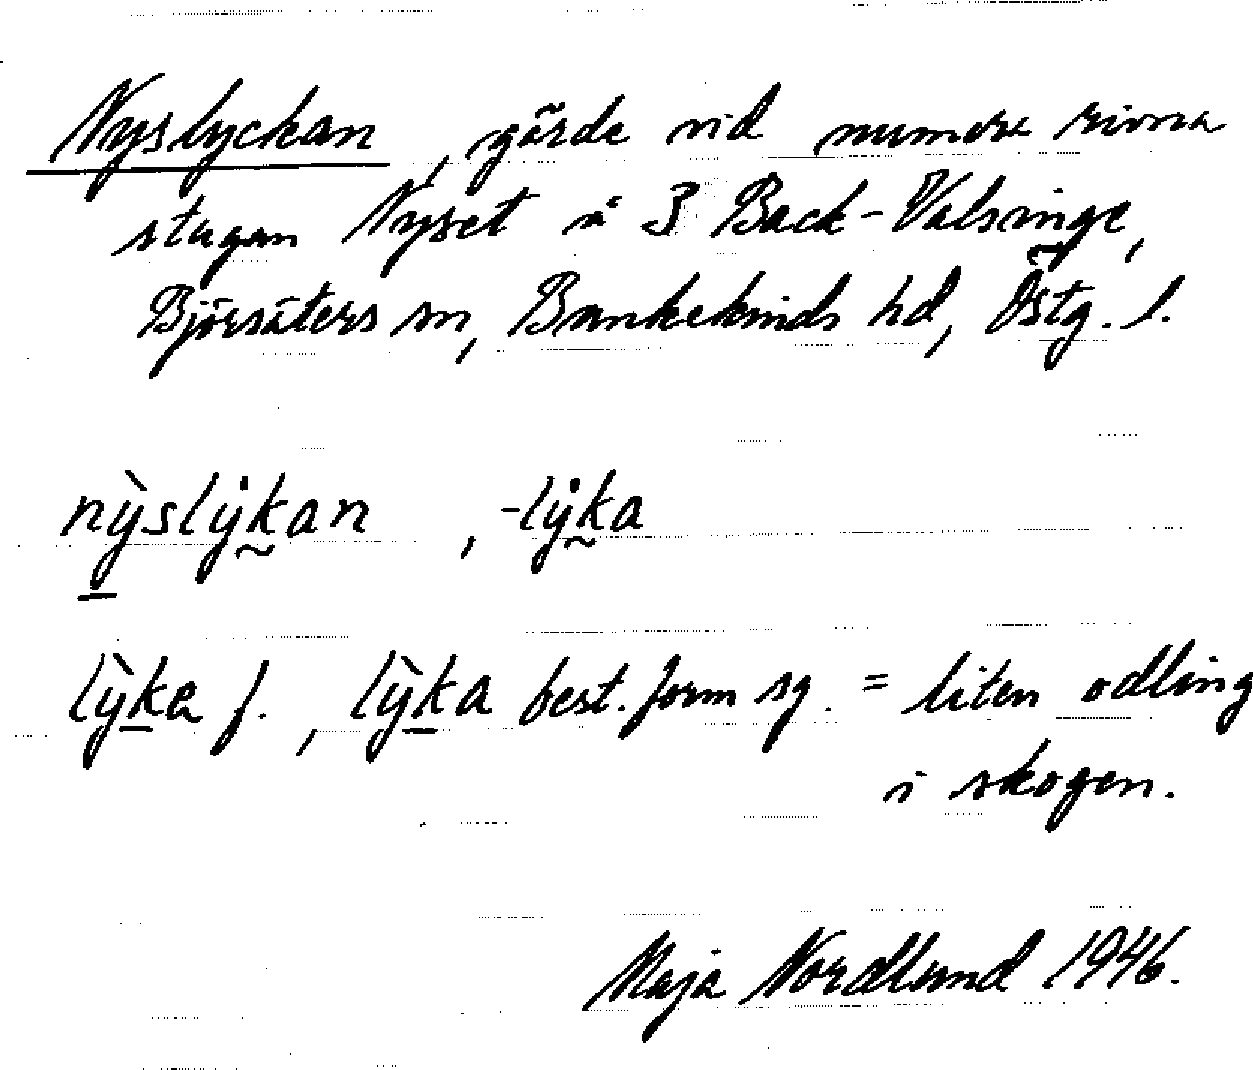 Nyslyckan, gärde vid numera rivna
stugan Nyset å 3 Back-Valsinge,
Björsäters sn, Bankekinds hd, Östg. l.
nỳslẏkan, -lẏka
lỳka f., lỳka best. form sg. = liten odling
i skogen.
Maja Nordlund 1946.